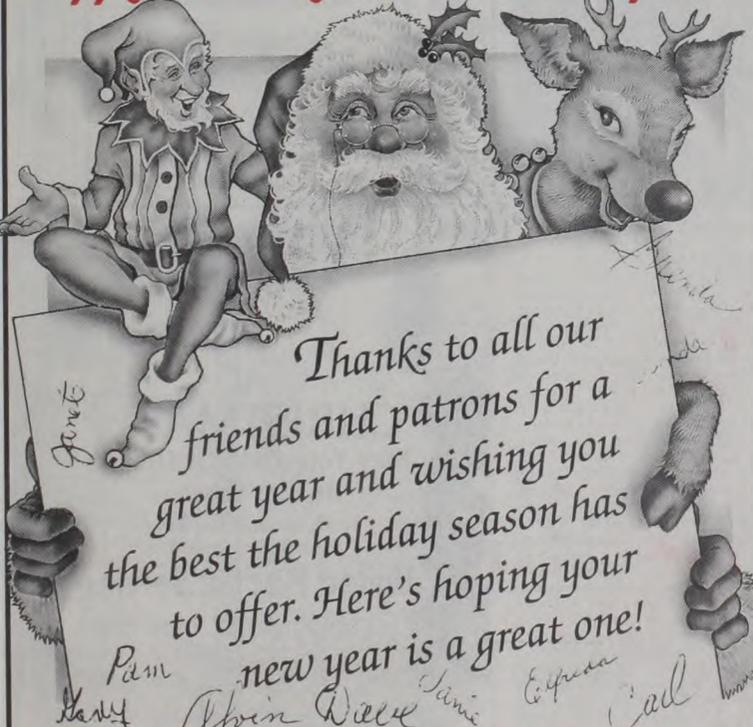 Thanks to all our
friends and patrons for a
great year and wishing you
the best the holiday season has
to offer. Here's hoping your
new year is a great one!
Janet
Pam
Gary
Alvin
Janie
Carl